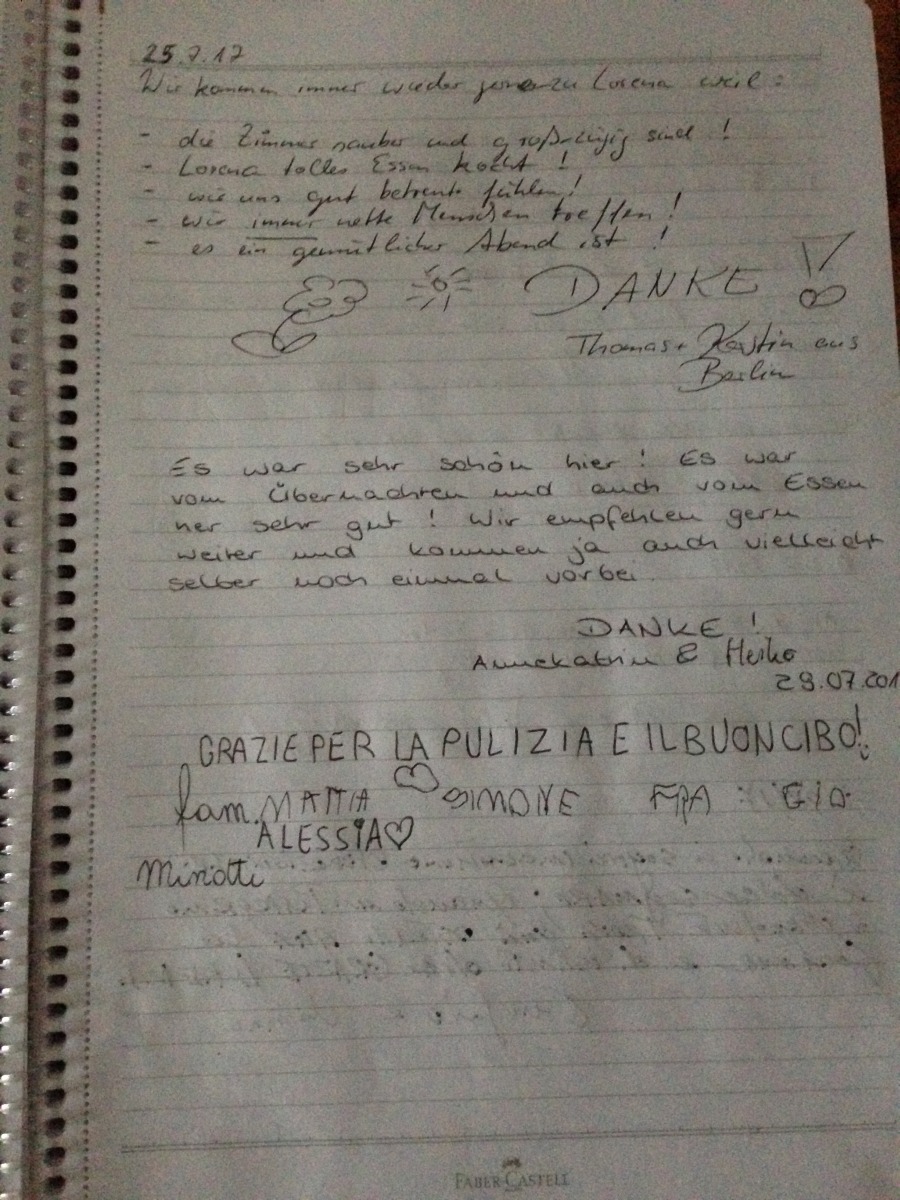 25.7.17
Wir kommen immer wieder gerne zu Lorena weil:
- die Zimmer sauber und großzügig sind !
- Lorena tolles Essen kocht !
- wir uns gut betreut fühlen!
- wir immer nette Menschen treffen !
- es ein gemütlicher Abend ist !
DANKE !
Thomas + Kerstin aus
Berlin
Es war sehr schön hier ! Es war
vom Übernachten und auch vom Essen
her sehr gut ! Wir empfehlen gern
weiter und kommen ja auch vielleicht
selber noch einmal vorbei.
DANKE !
Annekatrin & Heiko
29.07.201
GRAZIE PER LA PULIZIA E IL BUON CIBO!
fam. MATTIA SIMONE FRA GIO
ALESSIA
Minotti
FABER-CASTELL